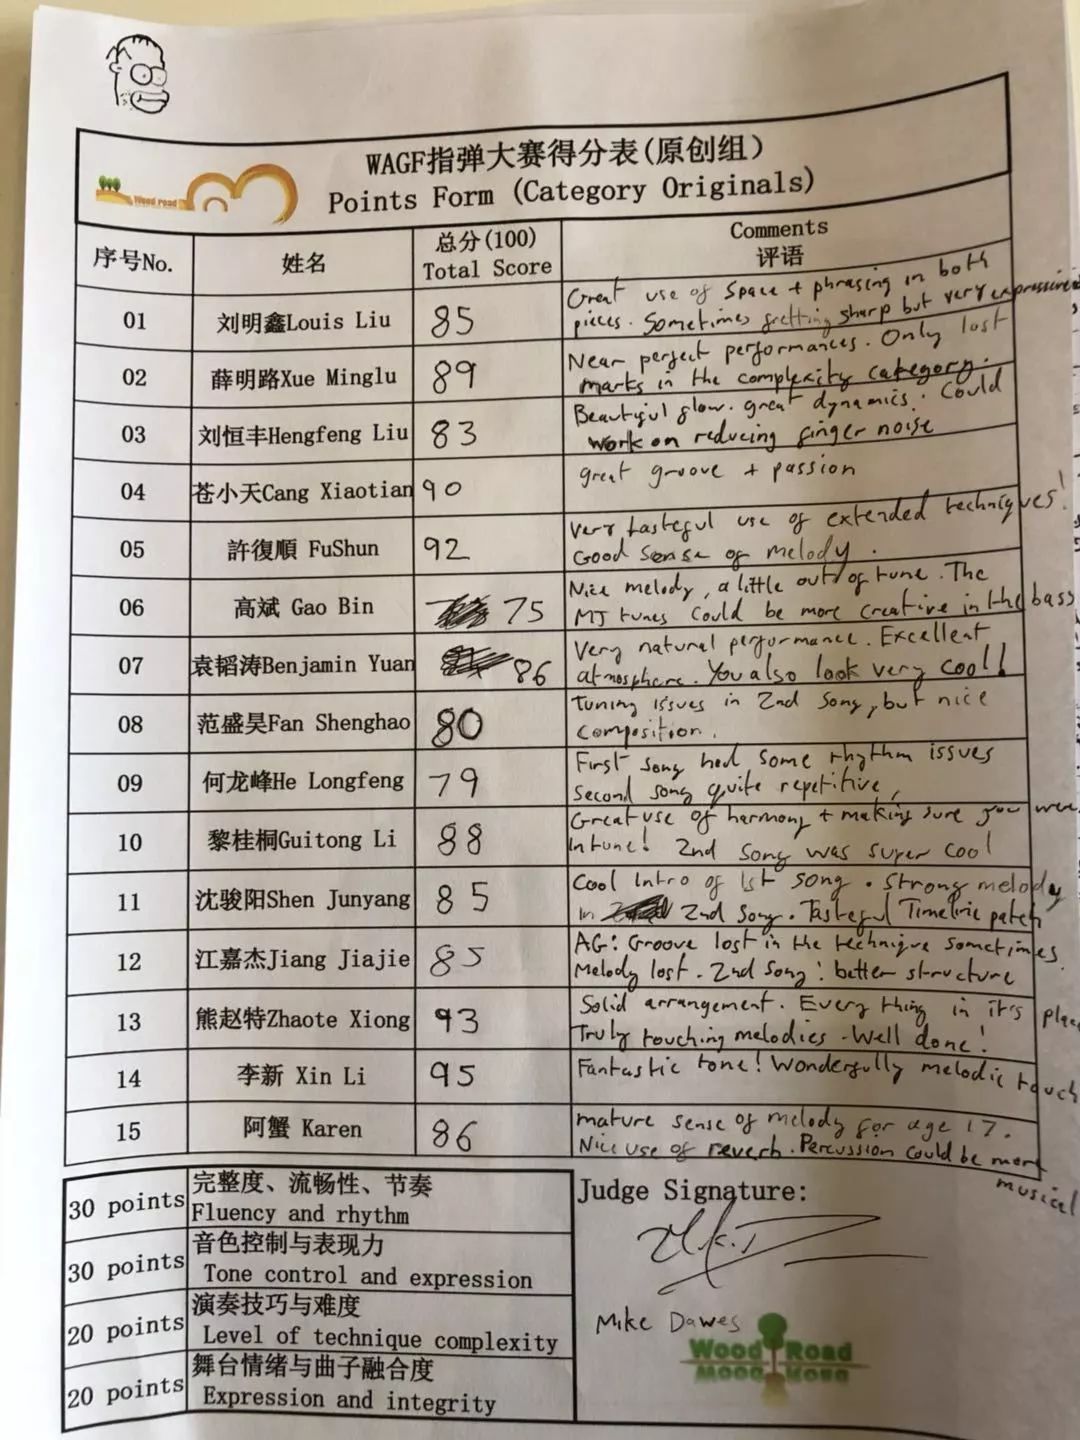 WAGF指弹大赛得分表(原创组)
Wood road
Points Form (Category Originals)
序号No. 姓名 总分(100) Total Score Comments 评语
01 刘明鑫Louis Liu 85 Great use of space + phrasing in both
pieces. Sometimes fretting sharp but very expressive
02 薛明路Xue Minglu 89 Near perfect performances. Only lost
marks in the complexity category.
03 刘恒丰Hengfeng Liu 83 Beautiful flow. great dynamics. Could
work on reducing finger noise
04 苍小天Cang Xiaotian 90 great groove + passion
05 許復順 FuShun 92 Very tasteful use of extended techniques!
Good sense of melody.
06 高斌 Gao Bin 75 Nice melody, a little out of tune. The
MJ tunes could be more creative in the bass
07 袁韬涛Benjamin Yuan 86 Very natural performance. Excellent
atmosphere. You also look very cool!
08 范盛昊Fan Shenghao 80 Tuning issues in 2nd song, but nice
composition.
09 何龙峰He Longfeng 79 First song had some rhythm issues
Second song quite repetitive,
10 黎桂桐Guitong Li 88 Great use of harmony + making sure you were
in tune! 2nd song was super cool
11 沈骏阳Shen Junyang 85 Cool intro of 1st song. Strong melody
in 2nd song. Tasteful Timeline patch
12 江嘉杰Jiang Jiajie 85 AG: Groove lost in the technique sometimes.
Melody lost. 2nd song: better structure
13 熊赵特Zhaote Xiong 93 Solid arrangement. Every thing in it's place
Truly touching melodies. Well done!
14 李新 Xin Li 95 Fantastic tone! Wonderfully melodic touch
15 阿蟹 Karen 86 mature sense of melody for age 17.
Nice use of reverb. Percussion could be more
musical
30 points 完整度、流畅性、节奏
Fluency and rhythm
30 points 音色控制与表现力
Tone control and expression
20 points 演奏技巧与难度
Level of technique complexity
20 points 舞台情绪与曲子融合度
Expression and integrity
Judge Signature:
Mike Dawes
Wood Road